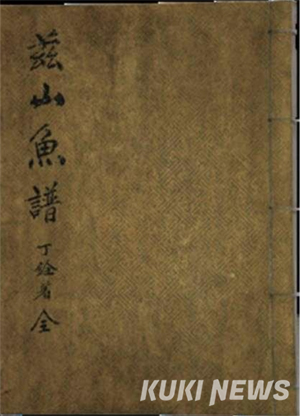 茲山魚譜
丁銓著 全
KUKI NEWS